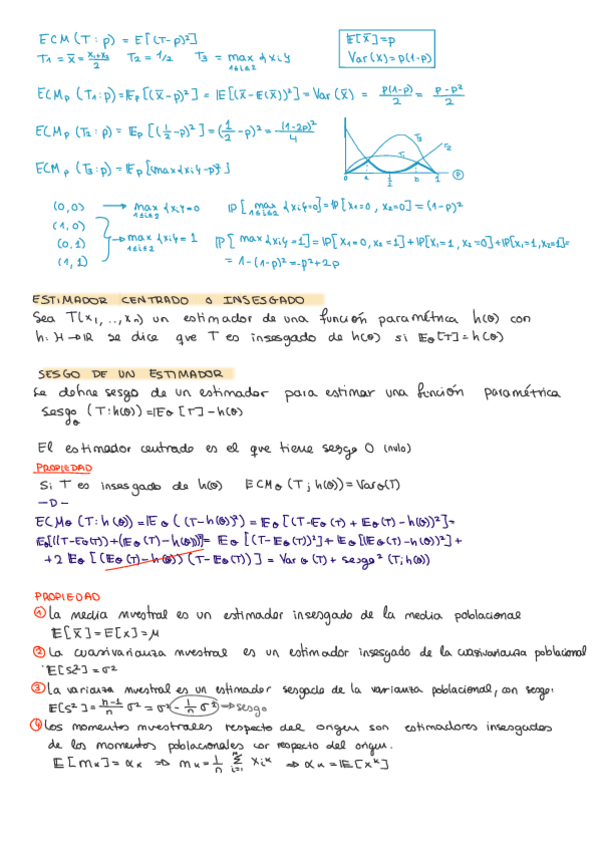 ECM (T:p) = E[(T-p)²]
E[X̄]=p
T1 = X̄ = (x1+x2)/2   T2 = 1/2   T3 = max {xi}
1≤i≤2
Var(X)=p(1-p)
ECMp (T1:p) = Ep[(X̄-p)²] = E[(X̄-E(X̄))²] = Var(X̄) = p(1-p)/2 = (p-p²)/2
ECMp (T2:p) = Ep[(1/2-p)²] = (1/2-p)² = (1-2p)²/4
T3
T1
T2
0 1/2 1 p
ECMp (T3:p) = Ep[(max{xi}-p)²]
(0,0) → max {xi}=0   P[max {xi}=0] = P[X1=0, X2=0] = (1-p)²
1≤i≤2
(1,0)
(0,1) → max {xi} = 1   P[max{xi}=1] = P[X1=0, X2=1] + P[X1=1, X2=0] + P[X1=1, X2=1] =
1≤i≤2
(1,1)   = 1-(1-p)² = -p²+2p
ESTIMADOR CENTRADO O INSESGADO
Sea T(x1,..,xn) un estimador de una función paramétrica h(θ) con
h: H → R se dice que T es insesgado de h(θ) si Eθ[T]=h(θ)
SESGO DE UN ESTIMADOR
Se define sesgo de un estimador para estimar una función paramétrica
Sesgoθ (T:h(θ)) = Eθ[T] - h(θ)
El estimador centrado es el que tiene sesgo 0 (nulo)
PROPIEDAD
Si T es insesgado de h(θ)   ECMθ (T; h(θ)) = Varθ(T)
-D-
ECMθ (T:h(θ)) = Eθ((T-h(θ))²) = Eθ[(T-Eθ(T) + Eθ(T)-h(θ))²] =
Eθ[((T-Eθ(T))+(Eθ(T)-h(θ)))²] = Eθ[(T-Eθ(T))²] + Eθ[(Eθ(T)-h(θ))²] +
+2 Eθ[(Eθ(T)-h(θ)) (T-Eθ(T))] = Varθ(T) + sesgo² (T;h(θ))
PROPIEDAD
① La media muestral es un estimador insesgado de la media poblacional
E[X̄] = E[X] = μ
② La cuasivarianza muestral es un estimador insesgado de la cuasivarianza poblacional
E[Sc²] = σ²
③ La varianza muestral es un estimador sesgado de la varianza poblacional, con sesgo:
E[S²] = (n-1)/n σ² = σ² - 1/n σ² → sesgo
④ Los momentos muestrales respecto del origen son estimadores insesgados
de los momentos poblacionales con respecto del origen.
E[mk] = αk ⇒ mk = 1/n Σ xi^k ⇒ αk = E[X^k]